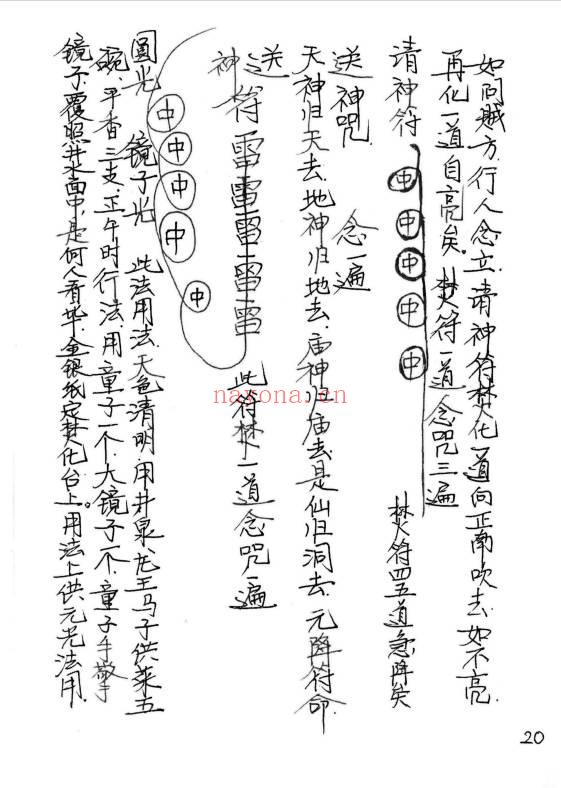 如问贼方.行人念立.请神符焚化一道向正南吹去.如不亮.
再化一道自亮矣.焚符一道念咒三遍
清神符 中中中中中 焚符四五道急降矣
送神咒 念一遍
天神归天去.地神归地去.庙神归庙去是仙归洞去.元降符命.
送神符 雷雷雷雷雷 此符焚一道念咒一遍
中中中中中
圆光 镜子光 此法用法.天色清明.用井泉龙王马子供菜五
碗.平香三支.正午时行法.用童子一个.大镜子一个.童子手擎
镜子覆照井水面中.是何人看毕.金银纸定焚化台上.用法上供元光法用.
naxona.cn
20